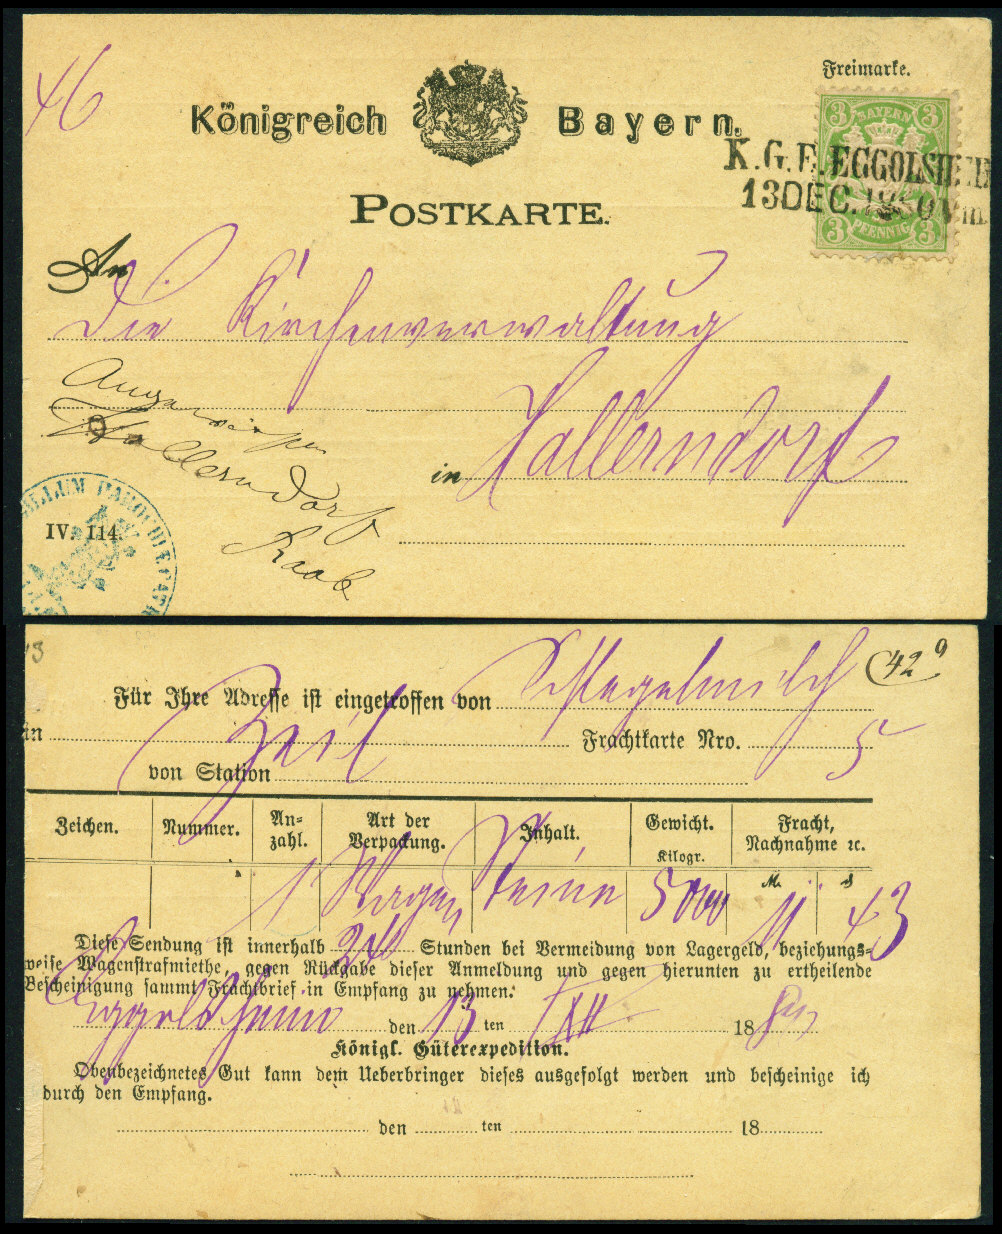 46
Freimarke.
Königreich Bayern.
3 BAYERN 3
K.G.E. EGGOLSHEIM
13 DEC. Vm.
3 PFENNIG 3
POSTKARTE.
An
Die Kirchenverwaltung
in Hallerndorf
Hallerndorf
Raab
SIGILLUM PAROCHI
IV. 114.
42
Für Ihre Adresse ist eingetroffen von Schlegelmilch
in Frachtkarte Nro. 5
von Station Zeil
Zeichen. Nummer. An-zahl. Art der Verpackung. Inhalt. Gewicht. Kilogr. Fracht, Nachnahme ꝛc.
M. ₰
1 Wagen Steine 5000 11 43
Diese Sendung ist innerhalb 24 Stunden bei Vermeidung von Lagergeld, beziehungs-
weise Wagenstrafmiethe, gegen Rückgabe dieser Anmeldung und gegen hierunten zu ertheilende
Bescheinigung sammt Frachtbrief in Empfang zu nehmen.
Eggolsheim den 13 ten XII 1880
Königl. Güterexpedition.
Obenbezeichnetes Gut kann dem Ueberbringer dieses ausgefolgt werden und bescheinige ich
durch den Empfang.
den ten 18